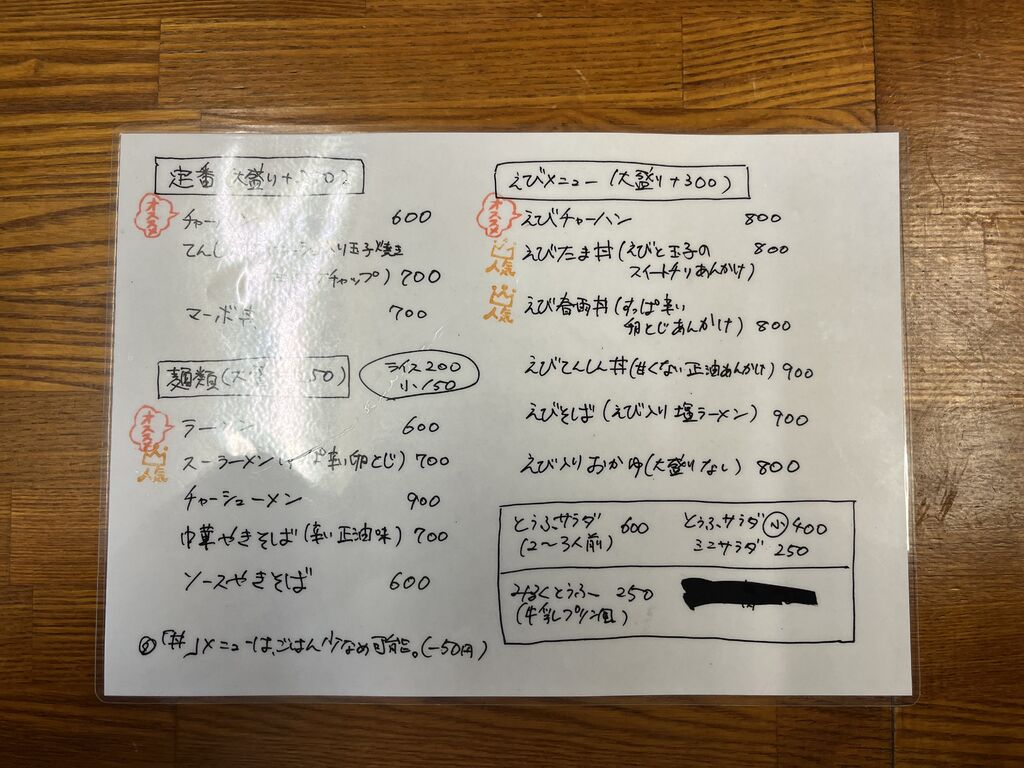 定番(大盛り+
オススメ
チャー ン 600
てんし 入り玉子焼き
チャップ) 700
マーボ丼 700
麺類(大 50)
ライス200
小150
オススメ
ラーメン 600
人気
スーラーメン 辛い卵とじ) 700
チャーシューメン 900
中華やきそば(辛い正油味) 700
ソースやきそば 600
「丼」メニューは、ごはん少なめ可能。(-50円)
えびメニュー(大盛り+300)
オススメ
えびチャーハン 800
人気
えびたま丼(えびと玉子の 800
スイートチリあんかけ)
人気
えび春雨丼(すっぱ辛い
卵とじあんかけ) 800
えびてんしん丼(甘くない正油あんかけ) 900
えびそば(えび入り塩ラーメン) 900
えび入りおかゆ(大盛りなし) 800
とうふサラダ 600
(2〜3人前)
とうふサラダ 小 400
ミニサラダ 250
みるくとうふー 250
(牛乳プリン風)